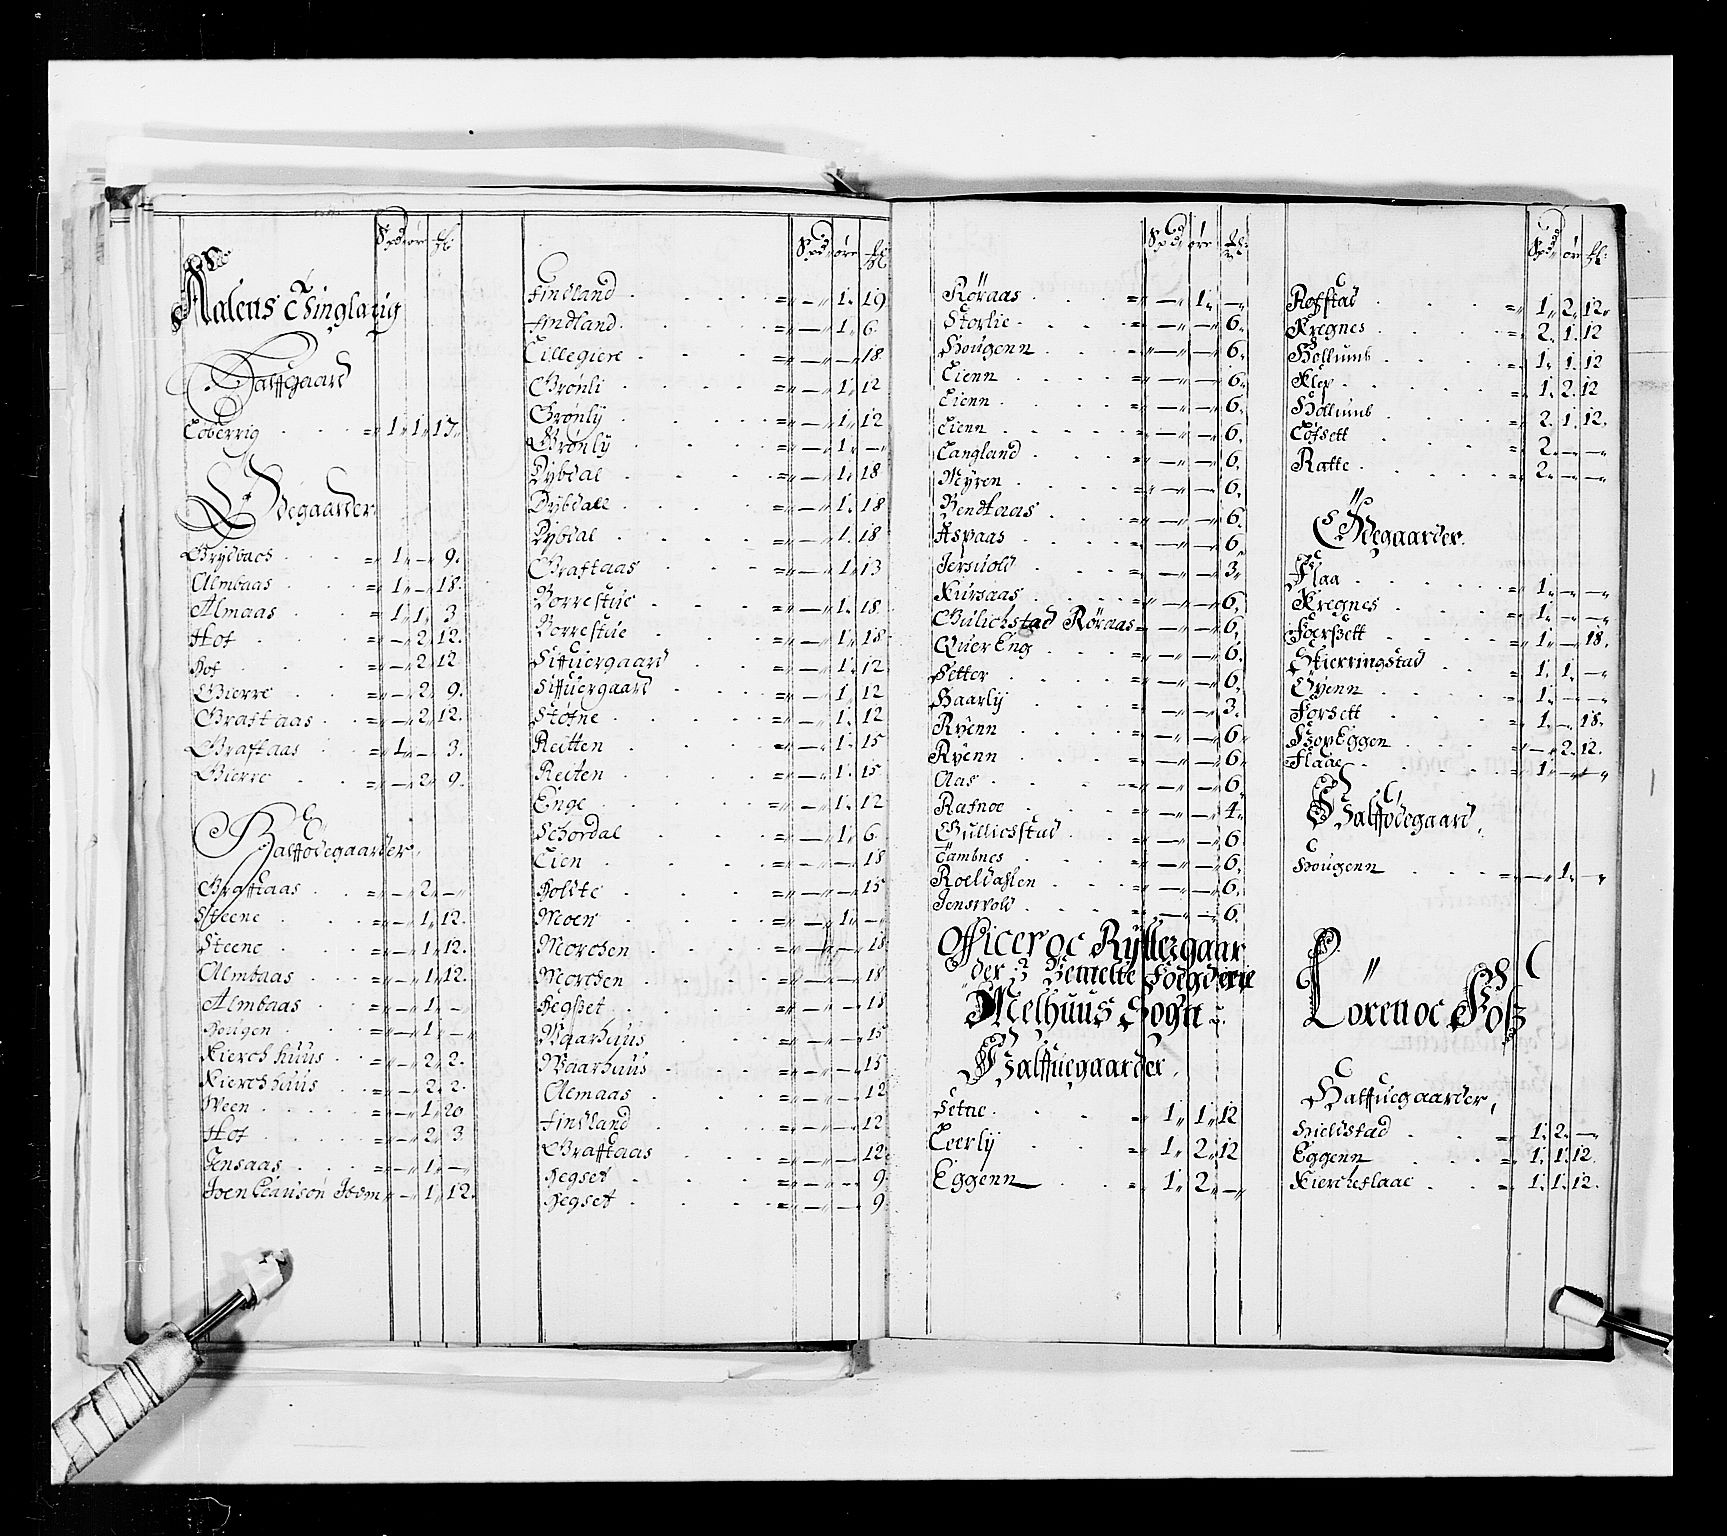 Spd øre
Aalens Tinglaug
Halffgaard
Løberrig = 1 1 17
Ødegaarder
Grydbach = 1 — 9
Almbaas = 1 — 18
Almaas = 1 1 3
Hof = — 2 12
Hof = — 2 12
Gierre = — 2 9
Graftaas = — 2 12
Graftaas = 1 — 3
Gierre = — 2 9
Halfødegaarder
Graftaas = — 2 —
Steene = — 1 12
Steene = — 1 12
Almbaas = — 1 12
Almbaas = — 1 —
Hougen = — 1 —
Kierchhuus = — 2 2
Kierchhuus = — 2 2
Ween = — 1 20
Hof = — 2 3
Jensaas = — 1 —
Joen Clausøn Ibdm = — 1 12
Spd øre
Findland = — 1 19
Findland = — 1 6
Lillegiere = — — 18
Grønli = — 1 12
Grønly = — 1 12
Grønly = — 1 —
Dybdal = — 1 18
Dybdall = — 1 18
Dybdal = — 1 18
Graftaas = — 1 13
Borrestue = — 1 18
Borrestue = — 1 18
Siffuergaard = — 1 12
Siffuergaard = — 1 12
Støfne = — 1 12
Reitten = — 1 15
Reiten = — 1 15
Enge = — 1 12
Schordal = — 1 6
Lien = — — 18
Holdte = — — 15
Moen = — 1 —
Morchen = — — 18
Morchen = — — 18
Hegset = — — 15
Waarhuus = — — 15
Waarhuus = — — 15
Almaas = — — 12
Findland = — — 12
Graftaas = — — 12
Hegset = — — 9
Hegset = — — 9
Spd øre
Røraas = — 1 —
Storlie = — — 6
Hougenn = — — 6
Lienn = — — 6
Lienn = — — 6
Lienn = — — 6
Langland = — — 6
Myren = — — 6
Bendtaas = — — 6
Aspaas = — — 6
Jersvold = — — 3
Kuraas = — — 6
Gulichstad Røraas = — — 6
Quer Eng = — — 6
Setter = — — 6
Haarly = — — 3
Ryenn = — — 6
Ryenn = — — 6
Aas = — — 6
Rafnoe = — — 4
Gullichstad = — — 6
Tambnes = — — 6
Roeldahlen = — — 6
Jenswold = — — 6
Officer oc Ryttergaar
der J Bemelte Fogderie
Melhuus Sogn
Halffuegaarder
Setne = 1 1 12
Leerly = 1 2 12
Eggenn = 1 2 —
Spd øre
Rofstad = 1 2 12
Kregnes = 2 1 12
Hollumb = 1 1 12
Klep = 1 2 12
Hollumb = 2 1 12
Løfsett = 2 — —
Ratte = 2 — —
Ødegaarder
Flaa = 1 — —
Kregnes = 1 — —
Foersett = 1 — 18
Skierringstad = 1 1 —
Øyenn = 1 — —
Forsett = 1 — 18
Hop Eggen = — 2 12
Flaae = 1 — —
Halffødegaard
Hougenn = — 1 —
Loren oc Hols
Halffuegaarder
Hieldstad = 1 2 —
Eggenn = 1 1 12
Kiercheflaae = 1 1 12